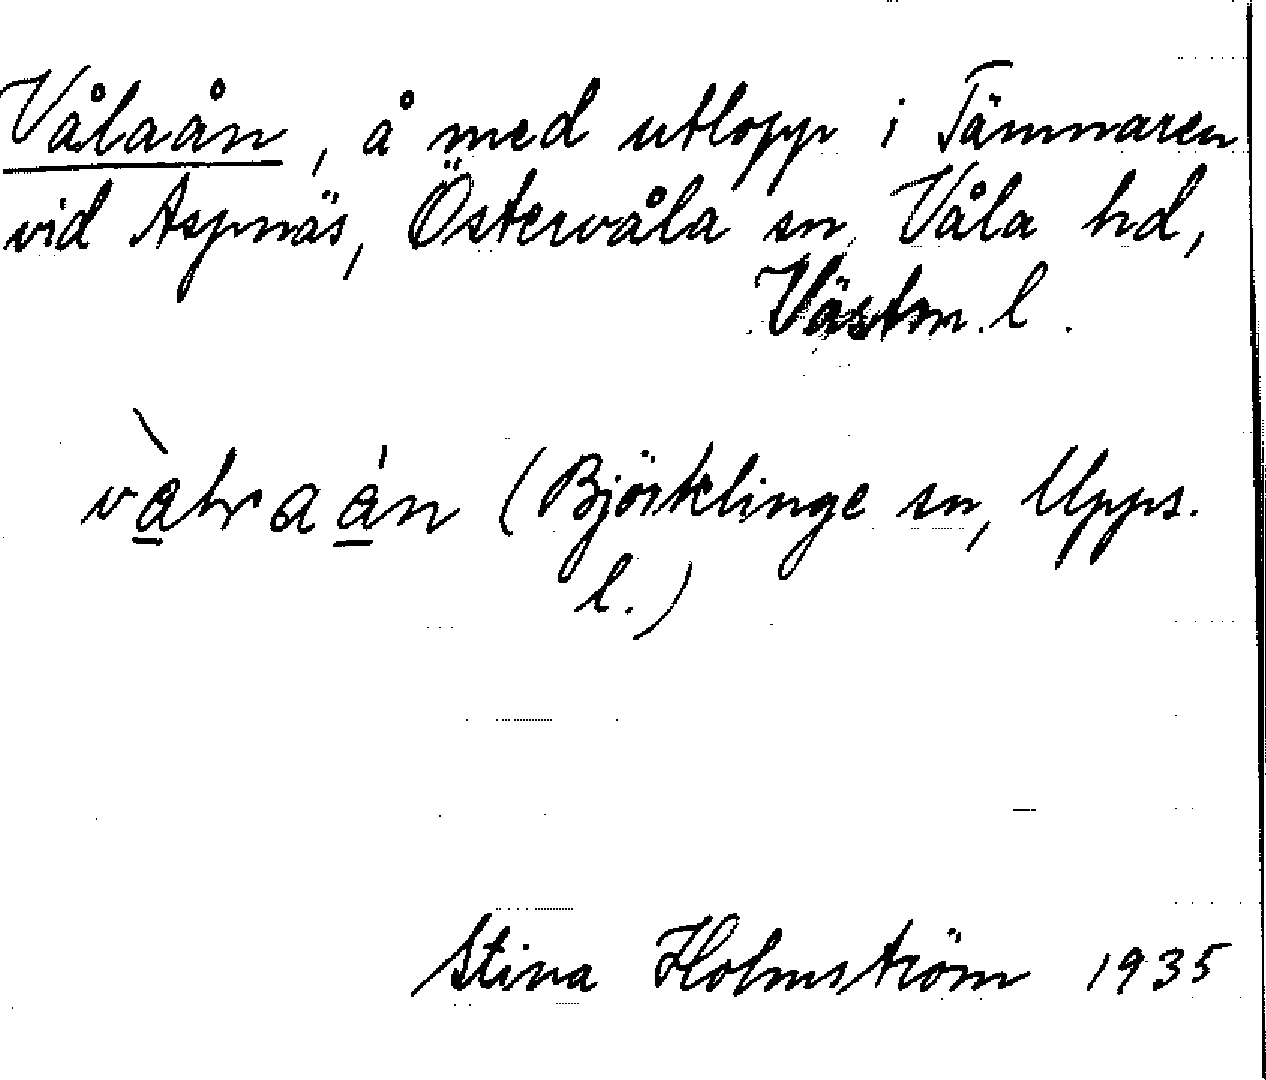 Vålaån, å med utlopp i Tämnaren
vid Aspnäs, Östervåla sn, Våla hd,
Västm. l.
(Björklinge sn, Upps.
l.)
Stina Holmström 1935